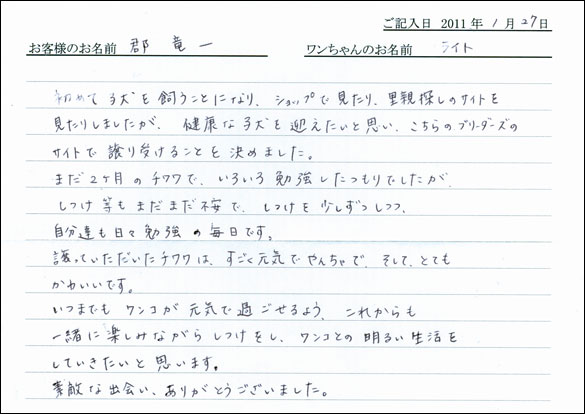 ご記入日 2011年 1月 27日
お客様のお名前 郡 竜一 ワンちゃんのお名前 ライト
初めて子犬を飼うことになり、ショップで見たり、里親探しのサイトを
見たりしましたが、健康な子犬を迎えたいと思い、こちらのブリーダーズの
サイトで譲り受けることを決めました。
まだ2ヶ月のチワワで、いろいろ勉強したつもりでしたが、
しつけ等もまだまだ不安で、しつけを少しずつしつつ、
自分達も日々勉強の毎日です。
譲っていただいたチワワは、すごく元気でやんちゃで、そして、とても
かわいいです。
いつまでもワンコが元気で過ごせるよう、これからも
一緒に楽しみながらしつけをし、ワンコとの明るい生活を
していきたいと思います。
素敵な出会い、ありがとうございました。